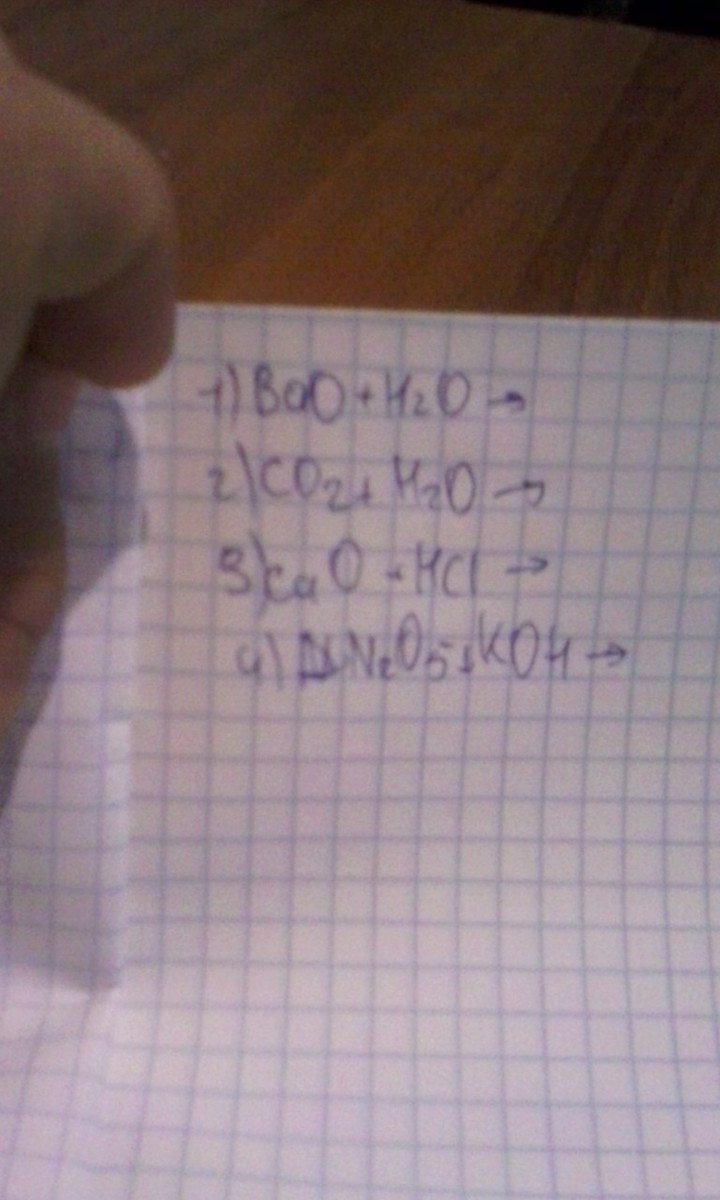 1) BaO + H2O →
2) CO2 + H2O →
3) CaO + HCl →
4) N2O5 + KOH →